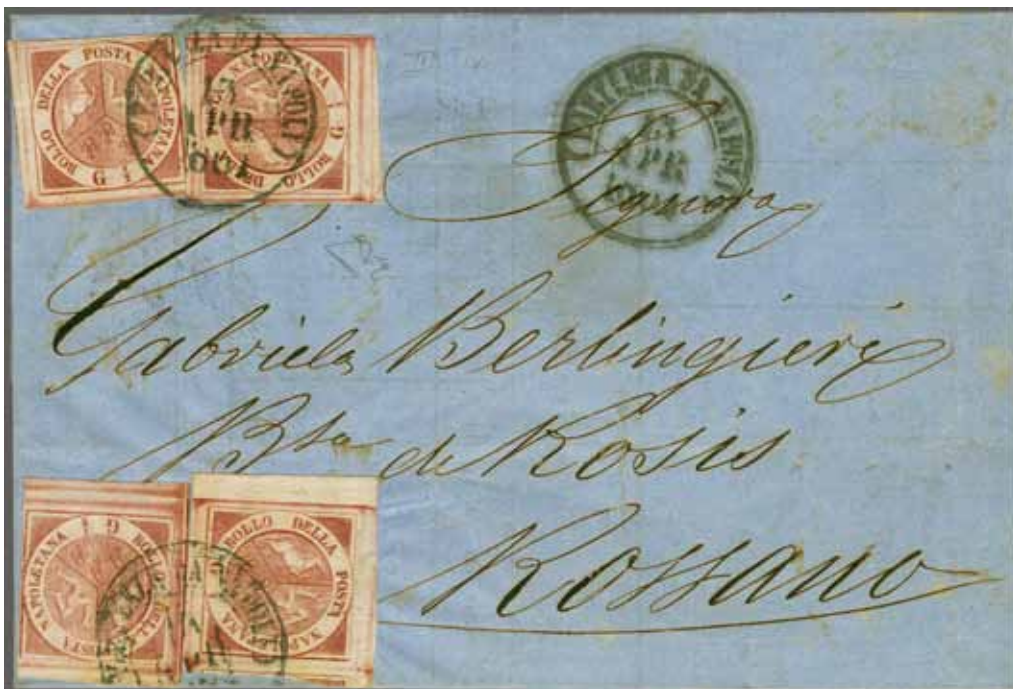 BOLLO DELLA POSTA NAPOLETANA G
BOLLO DELLA POSTA NAPOLETANA G
13
APR
1861
13
APR
Signora
Gabriela Berlingieri
B.sa de Rosis
Rossano
BOLLO DELLA POSTA NAPOLETANA G
BOLLO DELLA POSTA NAPOLETANA